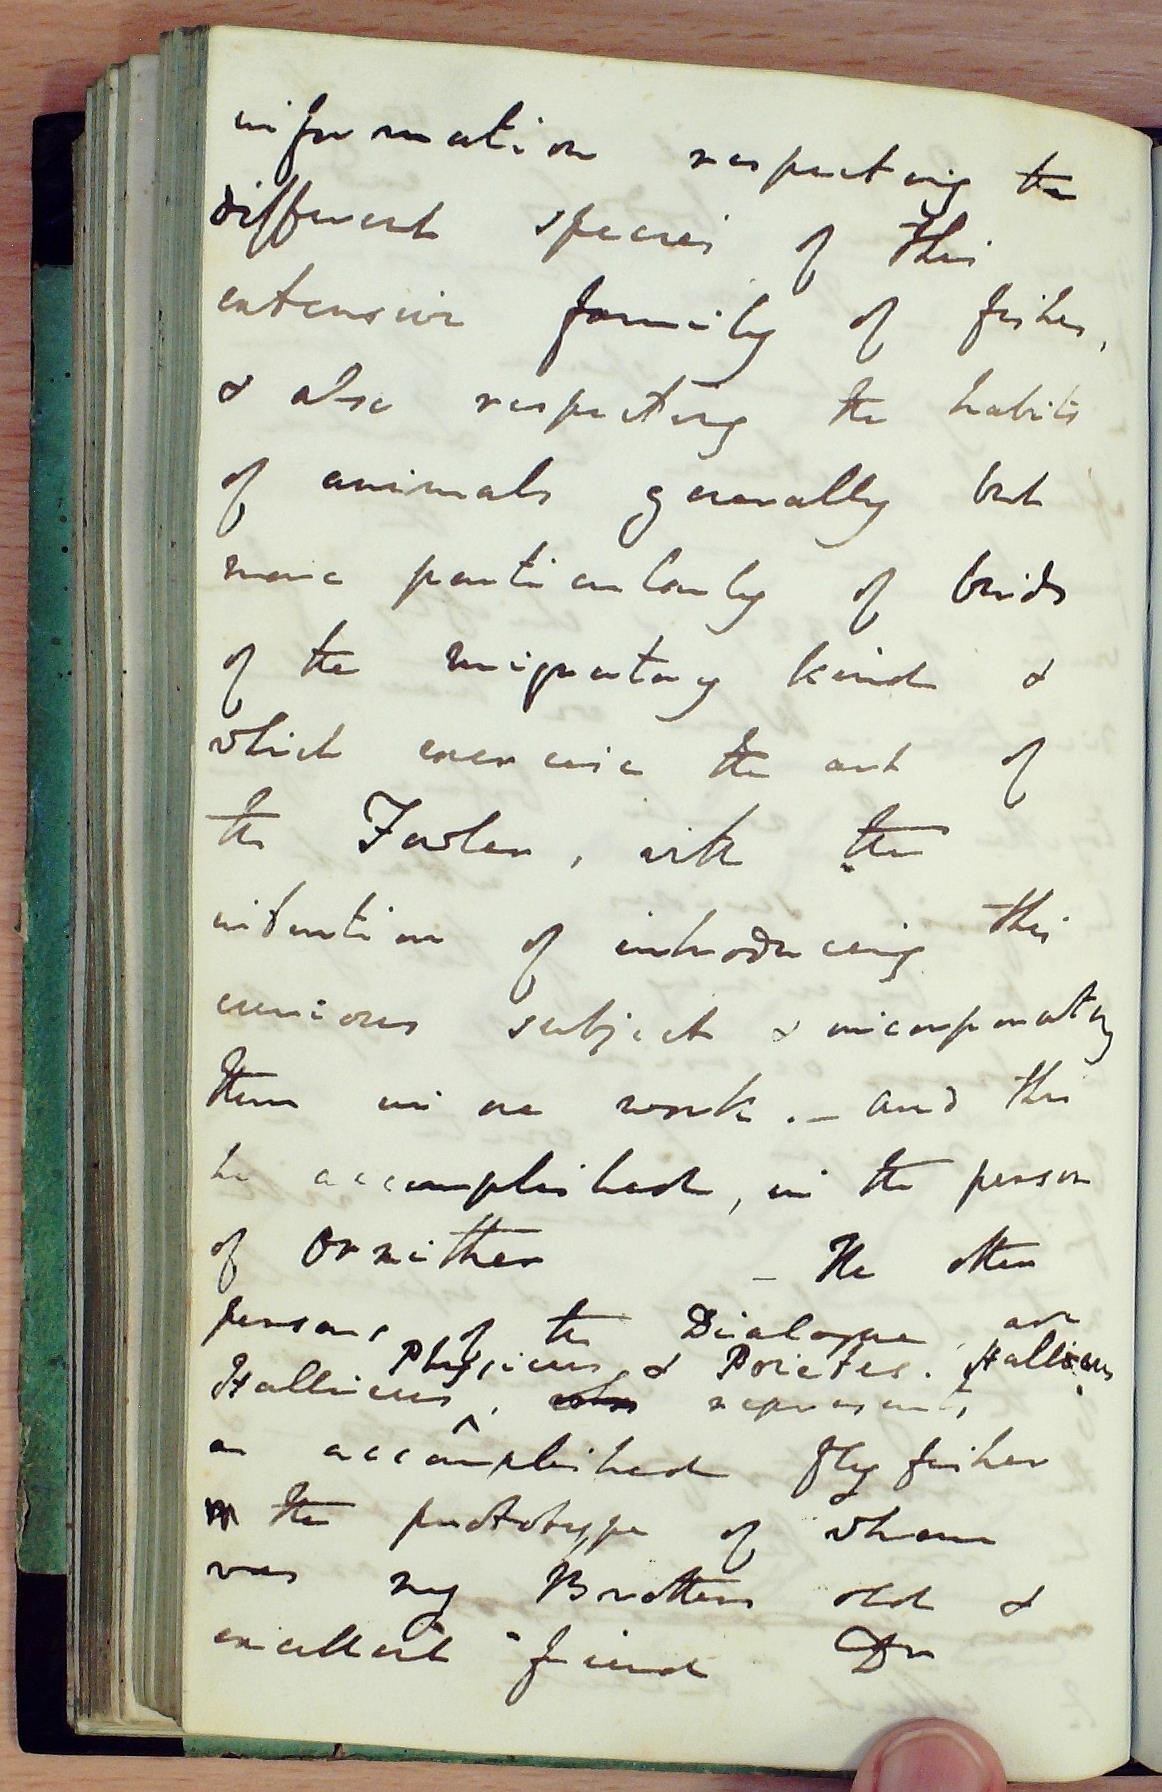 information respecting the
different species of this
extensive family of fishes,
& also respecting the habits
of animals generally but
more particularly of birds
of the migratory kind &
which exercise the art of
the Fowler, with the
intention of introducing this
curious subject & incorporating
them in one work. – and this
he accomplished, in the person
of Ornither – The other
persons of the Dialogue are
Physicus & Poietes. Halieus
Hallieus, who represents
an accomplished fly fisher
the prototype of whom
was my Brothers old &
excellent friend Dr